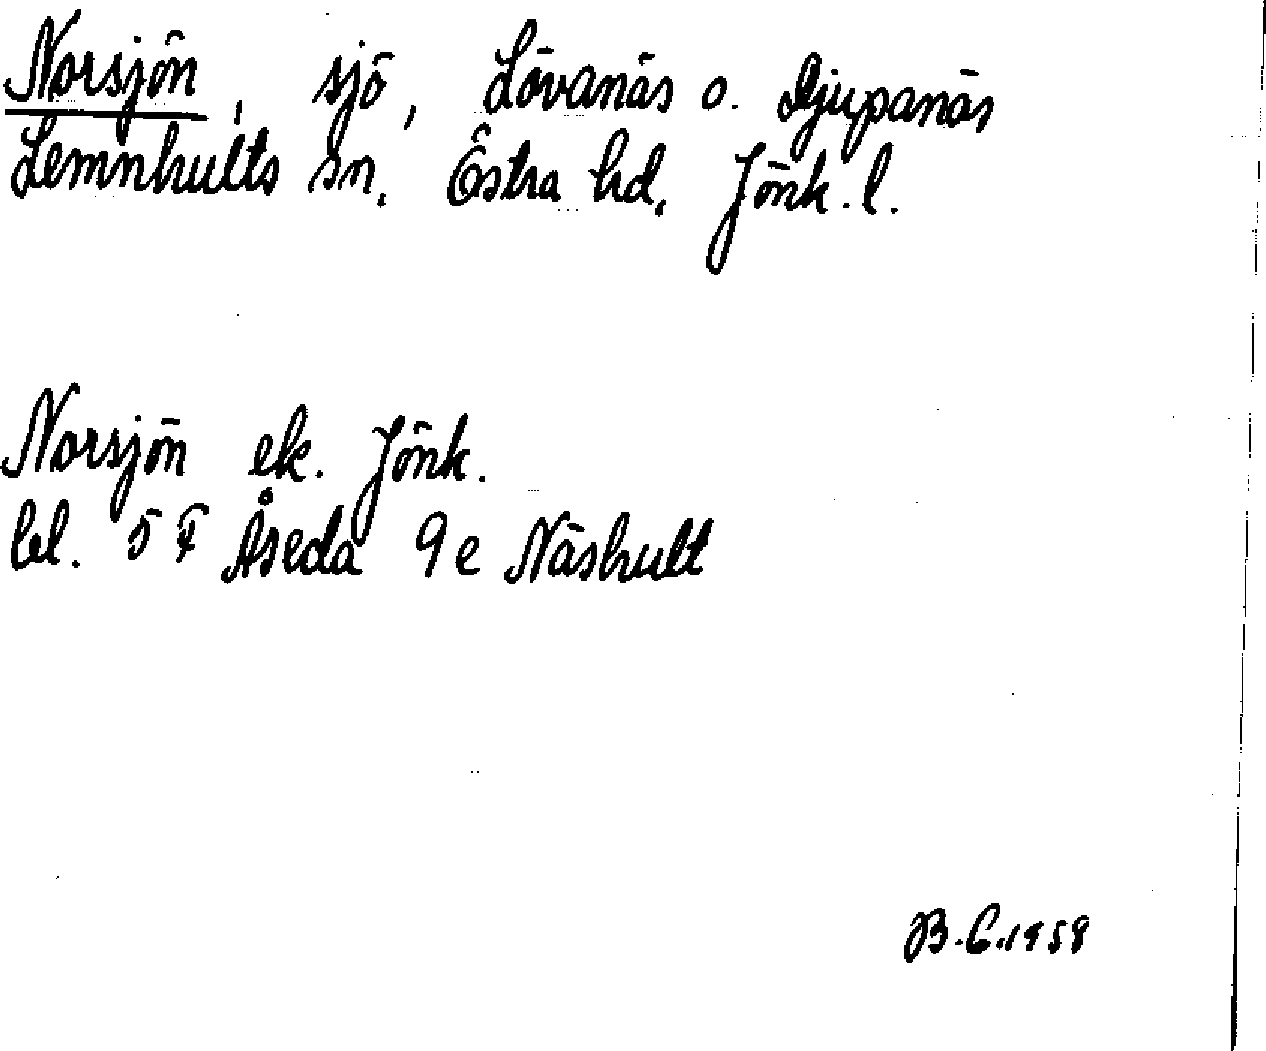 Norsjön, sjö, Lövanäs o. Djupanäs
Lemnhults sn. Östra hd. Jönk. l.
Norsjön ek. Jönk.
bl. 5 F Åseda 9 e Näshult
B.C. 1958